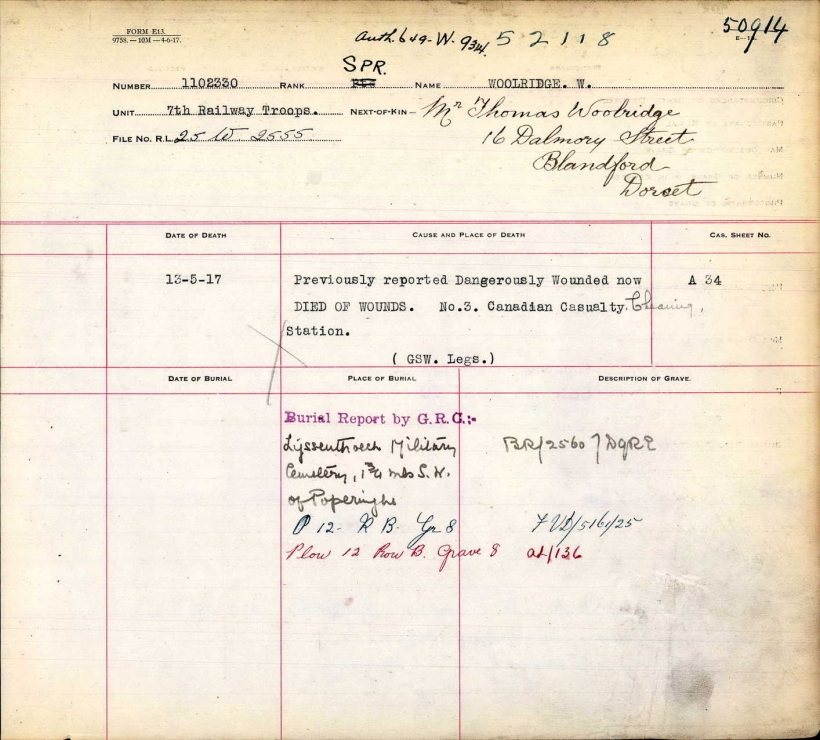 FORM E13.
9738. – 10M – 4-6-17.
Auth. 649-W. 934.
52118
50914
SPR.
NUMBER 1102330 RANK NAME WOOLRIDGE. W.
UNIT 7th Railway Troops. NEXT-OF-KIN – Mr Thomas Woolridge
FILE No. R.L. 25 W 2555
16 Dalmory Street
Blandford
Dorset
DATE OF DEATH CAUSE AND PLACE OF DEATH CAS. SHEET No.
13-5-17 Previously reported Dangerously Wounded now A 34
DIED OF WOUNDS. No.3. Canadian Casualty Clearing,
Station.
( GSW. Legs.)
DATE OF BURIAL PLACE OF BURIAL DESCRIPTION OF GRAVE.
Burial Report by G.R.C.:-
Lijssenthoech Military BR/2560/DGRE
Cemetery, 1¾ mls S.W.
of Poperinghe
P 12- R B. Gr 8
Plow 12 Row B. Grave 8 al/136